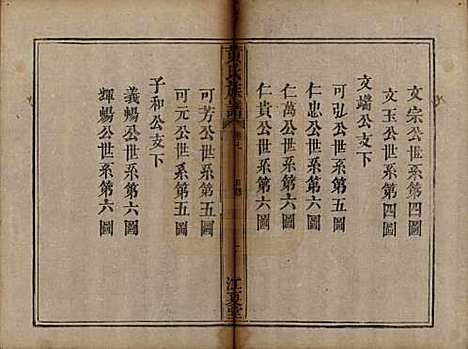 文宗公世系第四圖
文玉公世系第四圖
文端公支下
可弘公世系第五圖
仁忠公世系第六圖
仁萬公世系第六圖
仁貴公世系第六圖
黃氏族譜
江夏堂
可芳公世系第五圖
可元公世系第五圖
子和公支下
義暢公世系第六圖
輝暢公世系第六圖